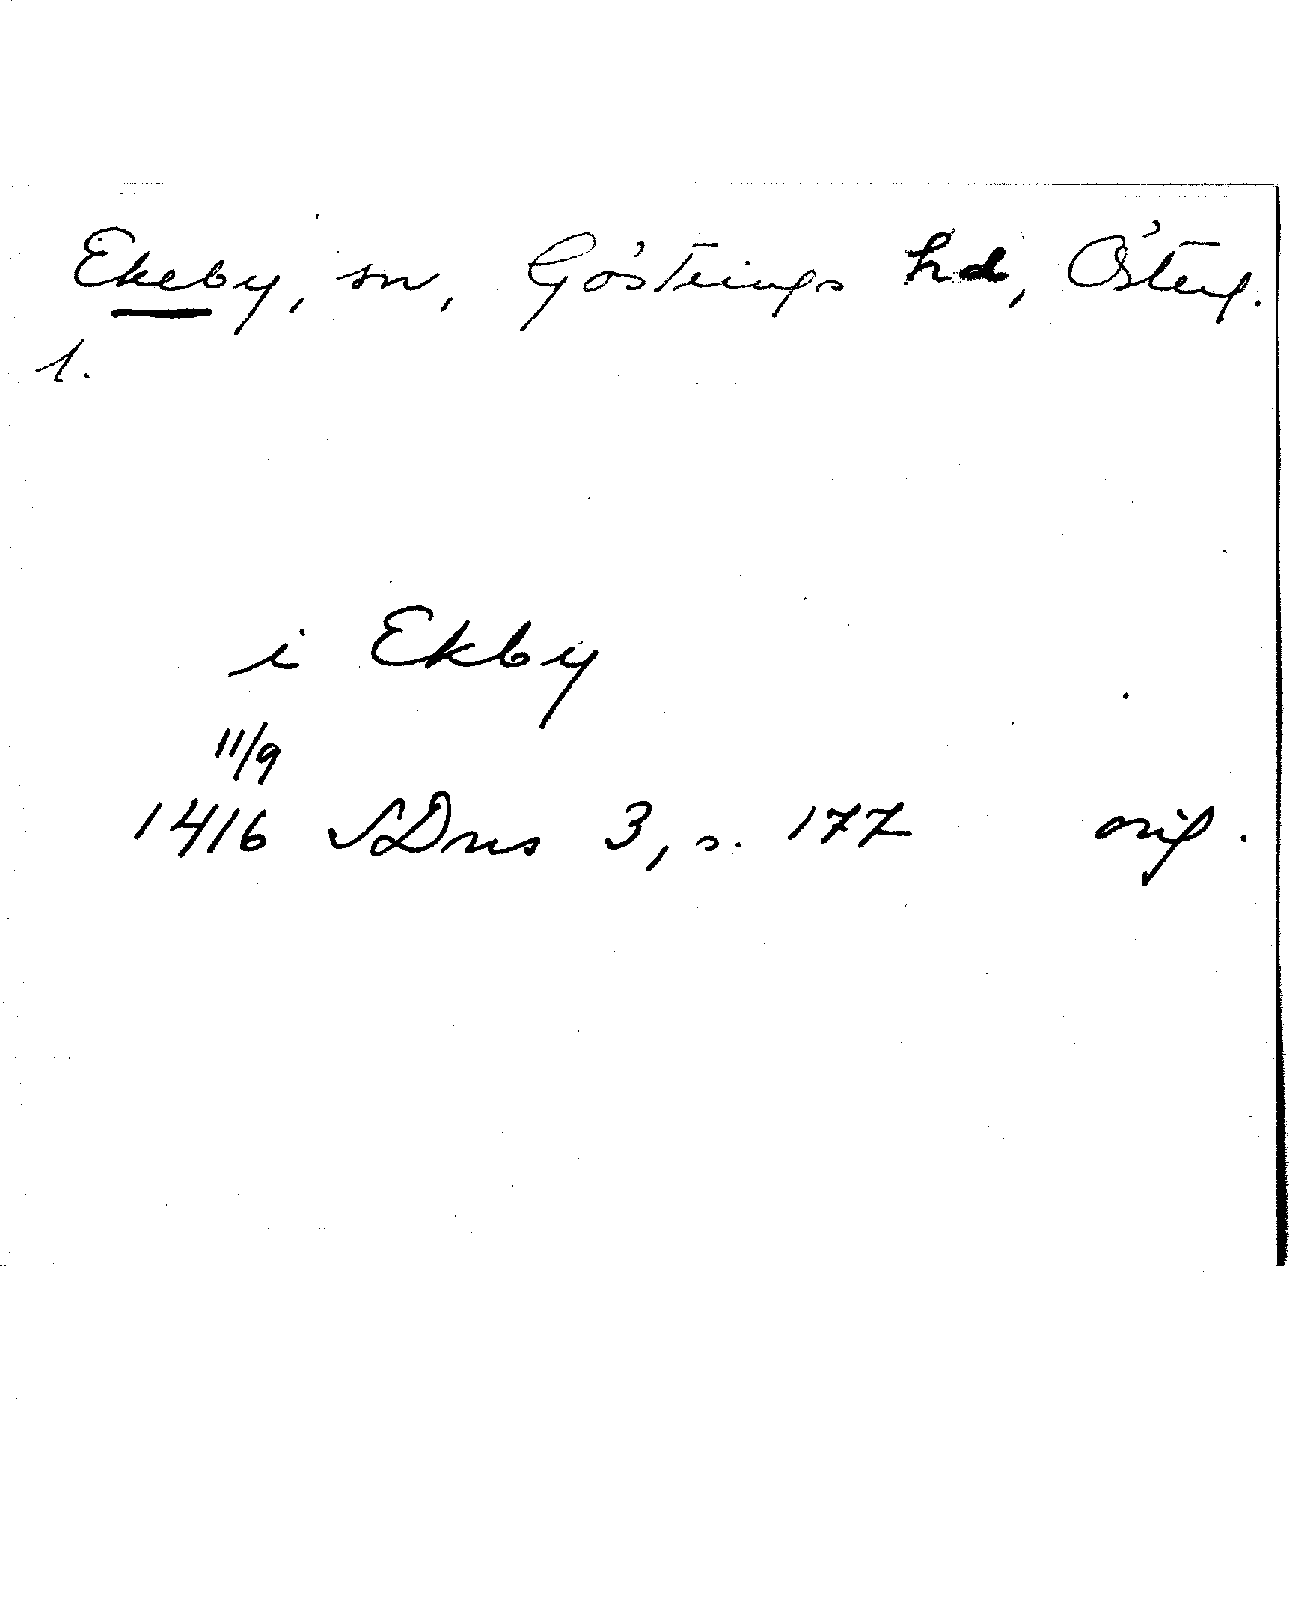 Ekeby, sn, Göstrings hd, Österg.
l.
i Ekby
11/9
1416 SDns 3, s. 177 orig.